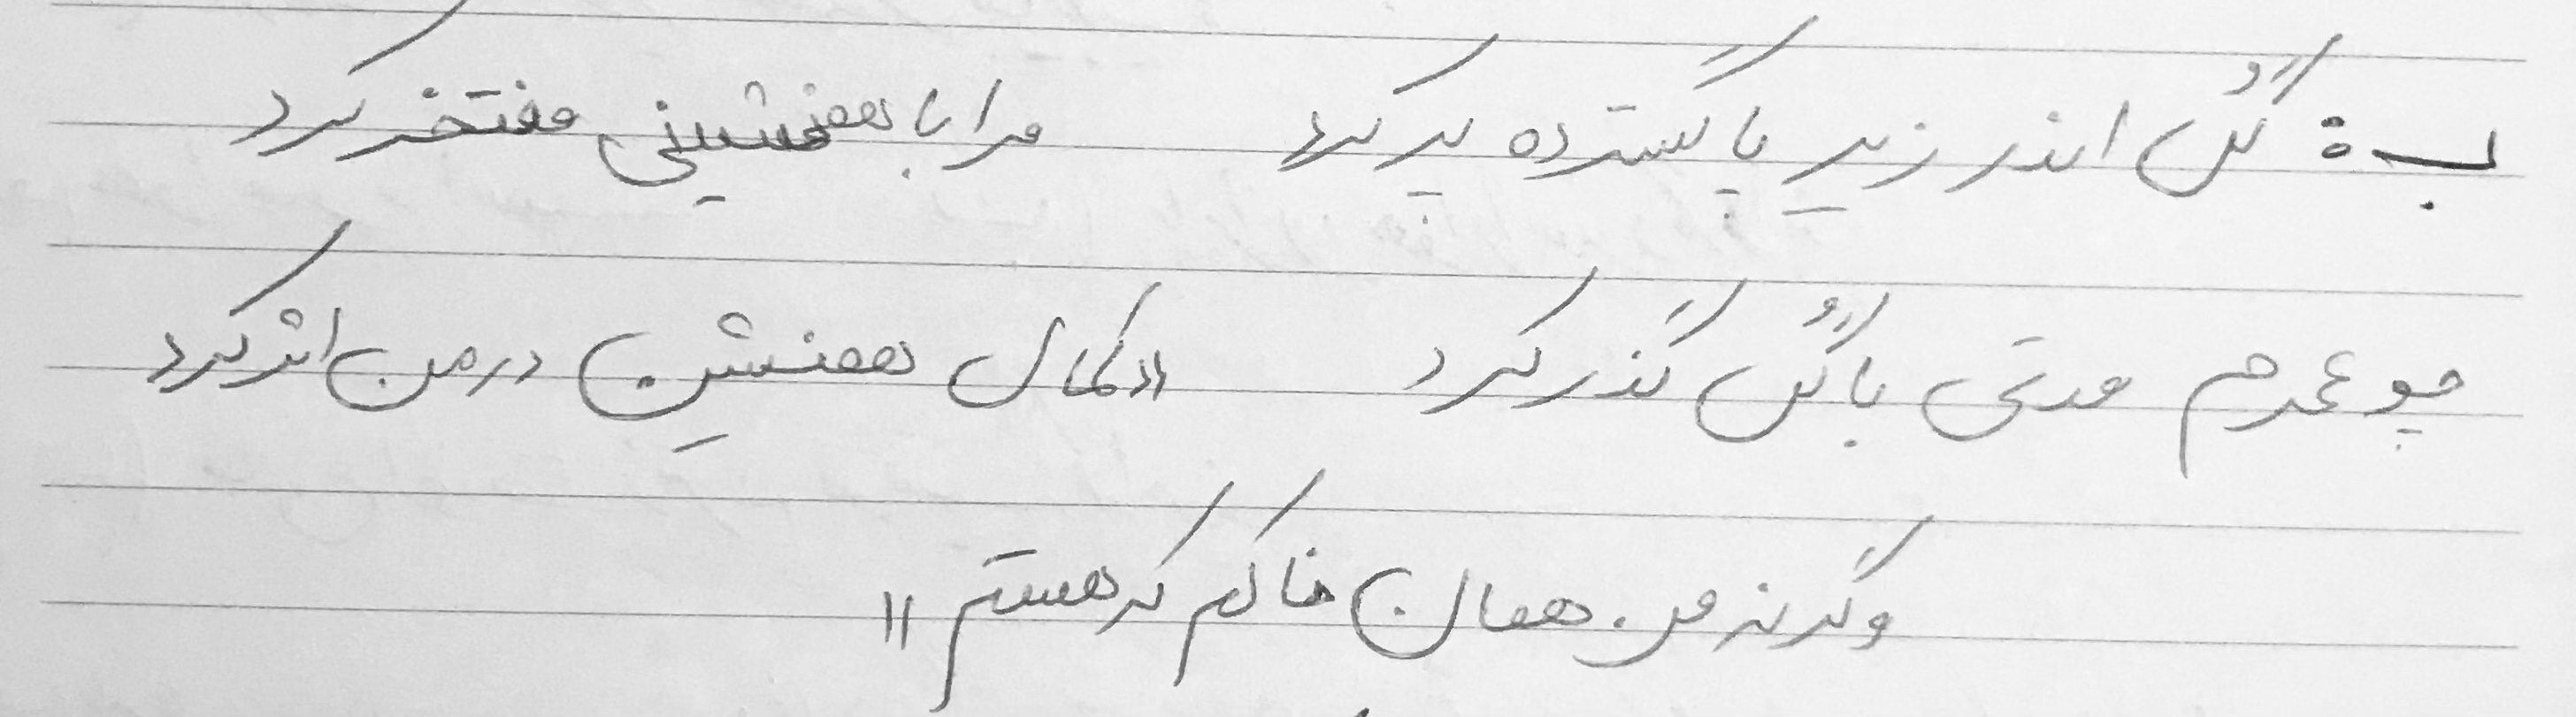 ب: گُل اندر زیر پا گسترده پر کرد مرا با همنشینی مفتخر کرد
چو عمرم مدتی با گُل گذر کرد «کمال همنشین در من اثر کرد
وگرنه من همان خاکم که هستم»